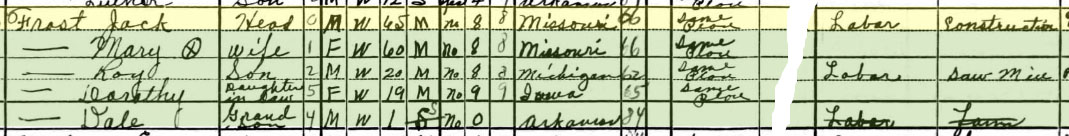 Frost Jack Head 0 M W 65 M no 8 8 Missouri 66 Same Place Labar Construction
— Mary Ⓧ wife 1 F W 60 M no 8 8 Missouri 66 Same Place
— Roy Son 2 M W 20 M no 8 8 Michigan 62 Same Place Labar Saw Mill
— Dorothy Daughter in Law 5 F W 19 M no 9 9 Iowa 65 Same Place
— Dale Grand Son 4 M W 1 S no 0 Arkansas 84 Labar Farm